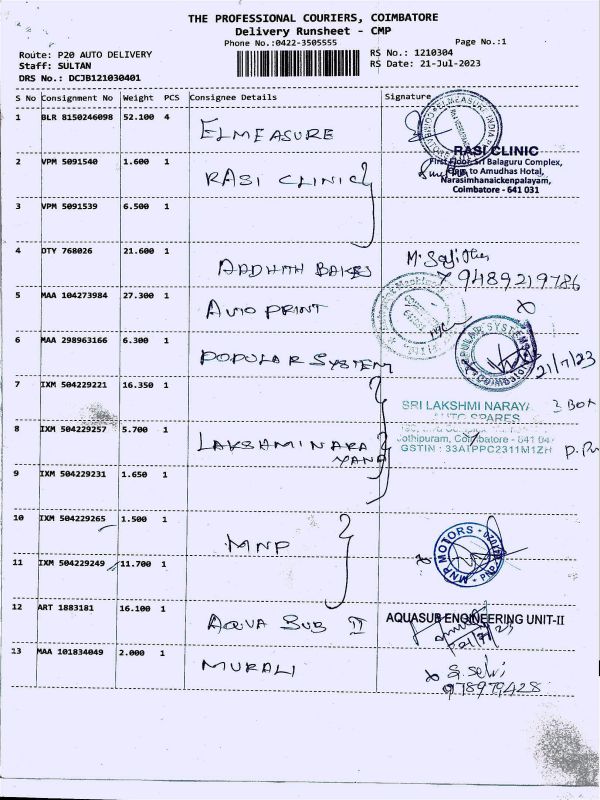 THE PROFESSIONAL COURIERS, COIMBATORE
Delivery Runsheet - CMP
Phone No.:0422-3505555
Page No.:1
Route: P20 AUTO DELIVERY
RS No.: 1210304
Staff: SULTAN
RS Date: 21-Jul-2023
DRS No.: DCJB121030401
S No Consignment No Weight PCS Consignee Details Signature
1 BLR 8150246098 52.100 4 ELMEASURE
2 VPM 5091540 1.600 1 RASI CLINIC
RASI CLINIC
First Floor, Sri Balaguru Complex,
to Amudhas Hotal,
Narasimhanaickenpalayam,
Coimbatore - 641 031
3 VPM 5091539 6.500 1
4 OTY 768026 21.600 1 AADHITH BAKES
9489219786
5 MAA 104273984 27.300 1 AUTO PRINT
6 MAA 298963166 6.300 1 POPULAR SYSTEM
POPULAR SYSTEMS
COIMBATORE
21/7/23
7 IXM 504229221 16.350 1
SRI LAKSHMI NARAYA
AUTO SPARES
3 Box
8 IXM 504229257 5.700 1 LAKSHMI NARA
YANA
Jothipuram, Coimbatore - 641 047
GSTIN : 33ATPPC2311M1ZH
9 IXM 504229231 1.650 1
10 IXM 504229265 1.500 1 MNP
MNR MOTORS
11 IXM 504229249 11.700 1
12 ART 1883181 16.100 1 AQUA SUB II
AQUASUB ENGINEERING UNIT-II
13 MAA 101834049 2.000 1 MURALI
S. Selvi
978979428